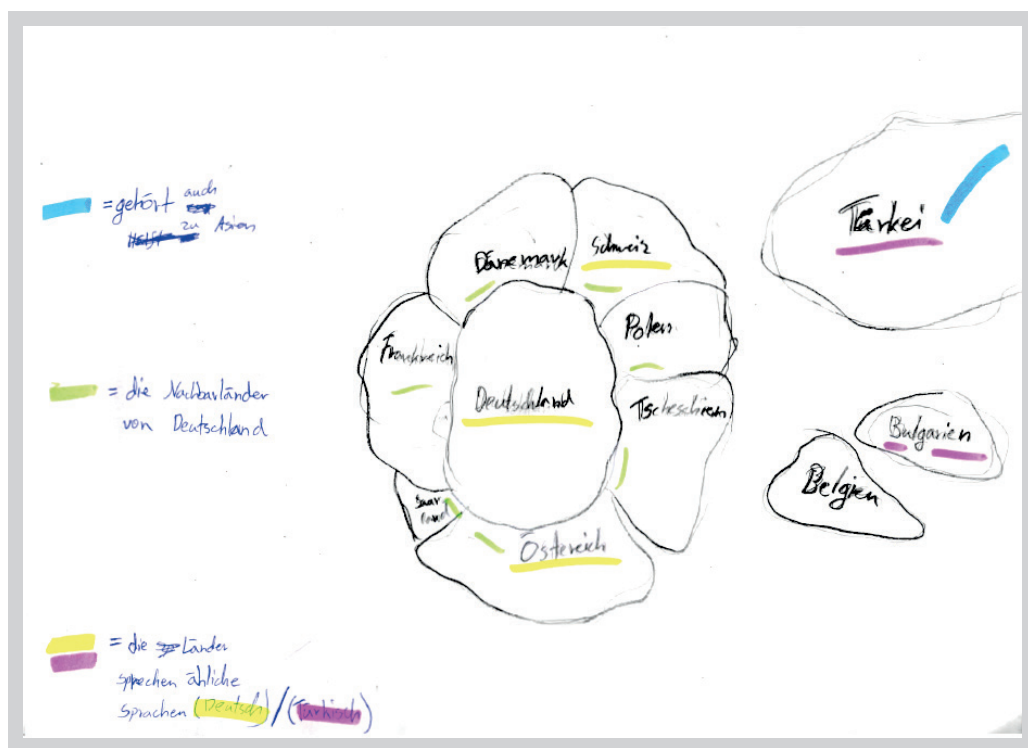 = gehört auch
zu Asien
= die Nachbarländer
von Deutschland
= die Länder
sprechen ähliche
Sprachen (Deutsch) / (Türkisch)
Dänemark
Schweiz
Frankreich
Polen
Deutschland
Tscheschien
Saar
land
Östereich
Türkei
Bulgarien
Belgien